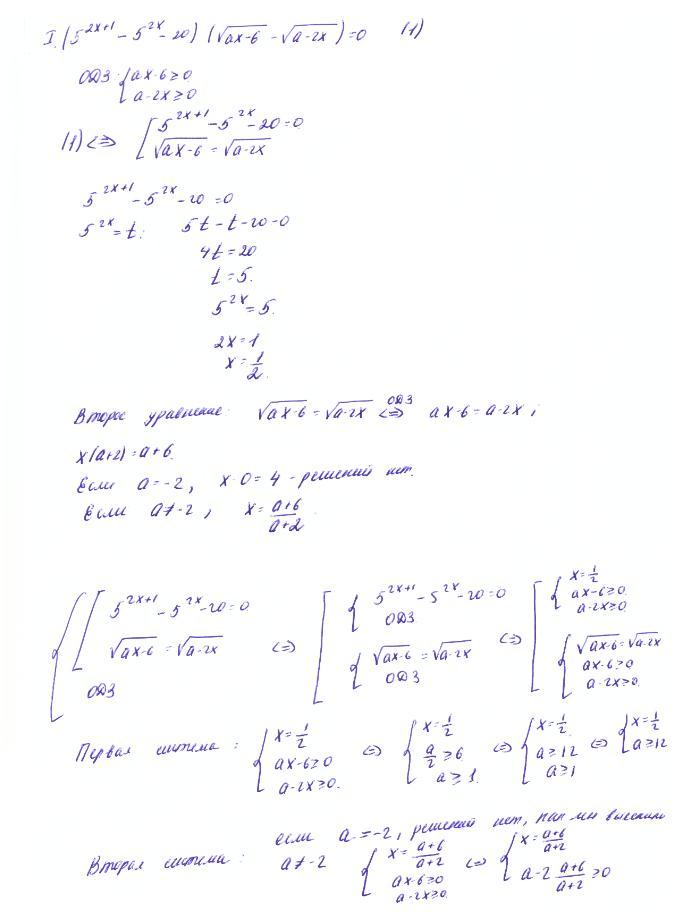 I. (5^{2x+1} - 5^{2x} - 20) (√(ax-6) - √(a-2x)) = 0 (1)
ОДЗ: { ax-6 ≥ 0
a-2x ≥ 0
(1) <=> [ 5^{2x+1} - 5^{2x} - 20 = 0
√(ax-6) = √(a-2x)
5^{2x+1} - 5^{2x} - 20 = 0
5^{2x} = t: 5t - t - 20 = 0
4t = 20
t = 5.
5^{2x} = 5.
2x = 1
x = 1/2.
Второе уравнение: √(ax-6) = √(a-2x) <=>^{ОДЗ} ax-6 = a-2x;
x(a+2) = a+6.
Если a = -2, x·0 = 4 - решений нет.
Если a ≠ -2, x = (a+6)/(a+2).
{ [ 5^{2x+1} - 5^{2x} - 20 = 0 √(ax-6) = √(a-2x) ОДЗ <=> [ { 5^{2x+1} - 5^{2x} - 20 = 0 ОДЗ { √(ax-6) = √(a-2x) ОДЗ <=> [ { x = 1/2 ax-6 ≥ 0 a-2x ≥ 0 { √(ax-6) = √(a-2x) ax-6 ≥ 0 a-2x ≥ 0.
Первая система: { x = 1/2 ax-6 ≥ 0 a-2x ≥ 0. <=> { x = 1/2 a/2 ≥ 6 a ≥ 1. <=> { x = 1/2. a ≥ 12 a ≥ 1 <=> { x = 1/2 a ≥ 12
если a = -2, решений нет, как мы выяснили
Вторая система: a ≠ -2 { x = (a+6)/(a+2) ax-6 ≥ 0 a-2x ≥ 0. <=> { x = (a+6)/(a+2) a-2 (a+6)/(a+2) ≥ 0